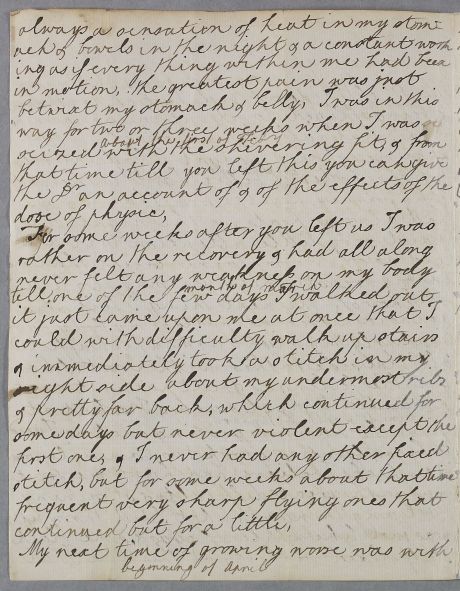 always a sensation of heat in my stom-
ach & bowels in the night & a constant work
ing as if every thing within me had been
in motion, the greatest pain was just
betwixt my stomach & belly, I was in this
way for two or three weeks when I was
about the first of Febry
seized with the shivering fit, & from
that time till you left this you can give
the Dr an account of & of the effects of the
dose of physic,
For some weeks after you left us I was
rather on the recovery & had all along
never felt any weakness on my body
month of March
till one of the few days I walked out
it just came upon me at once that I
could with difficulty walk up stairs
& immediately took a stitch in my
right side about my undermost ribs
& pretty far back, which continued for
some days but never violent except the
first one, & I never had any other fixed
stitch, but for some weeks about that time
frequent very sharp flying ones that
continued but for a little,
My next time of growing worse was with
beginning of April